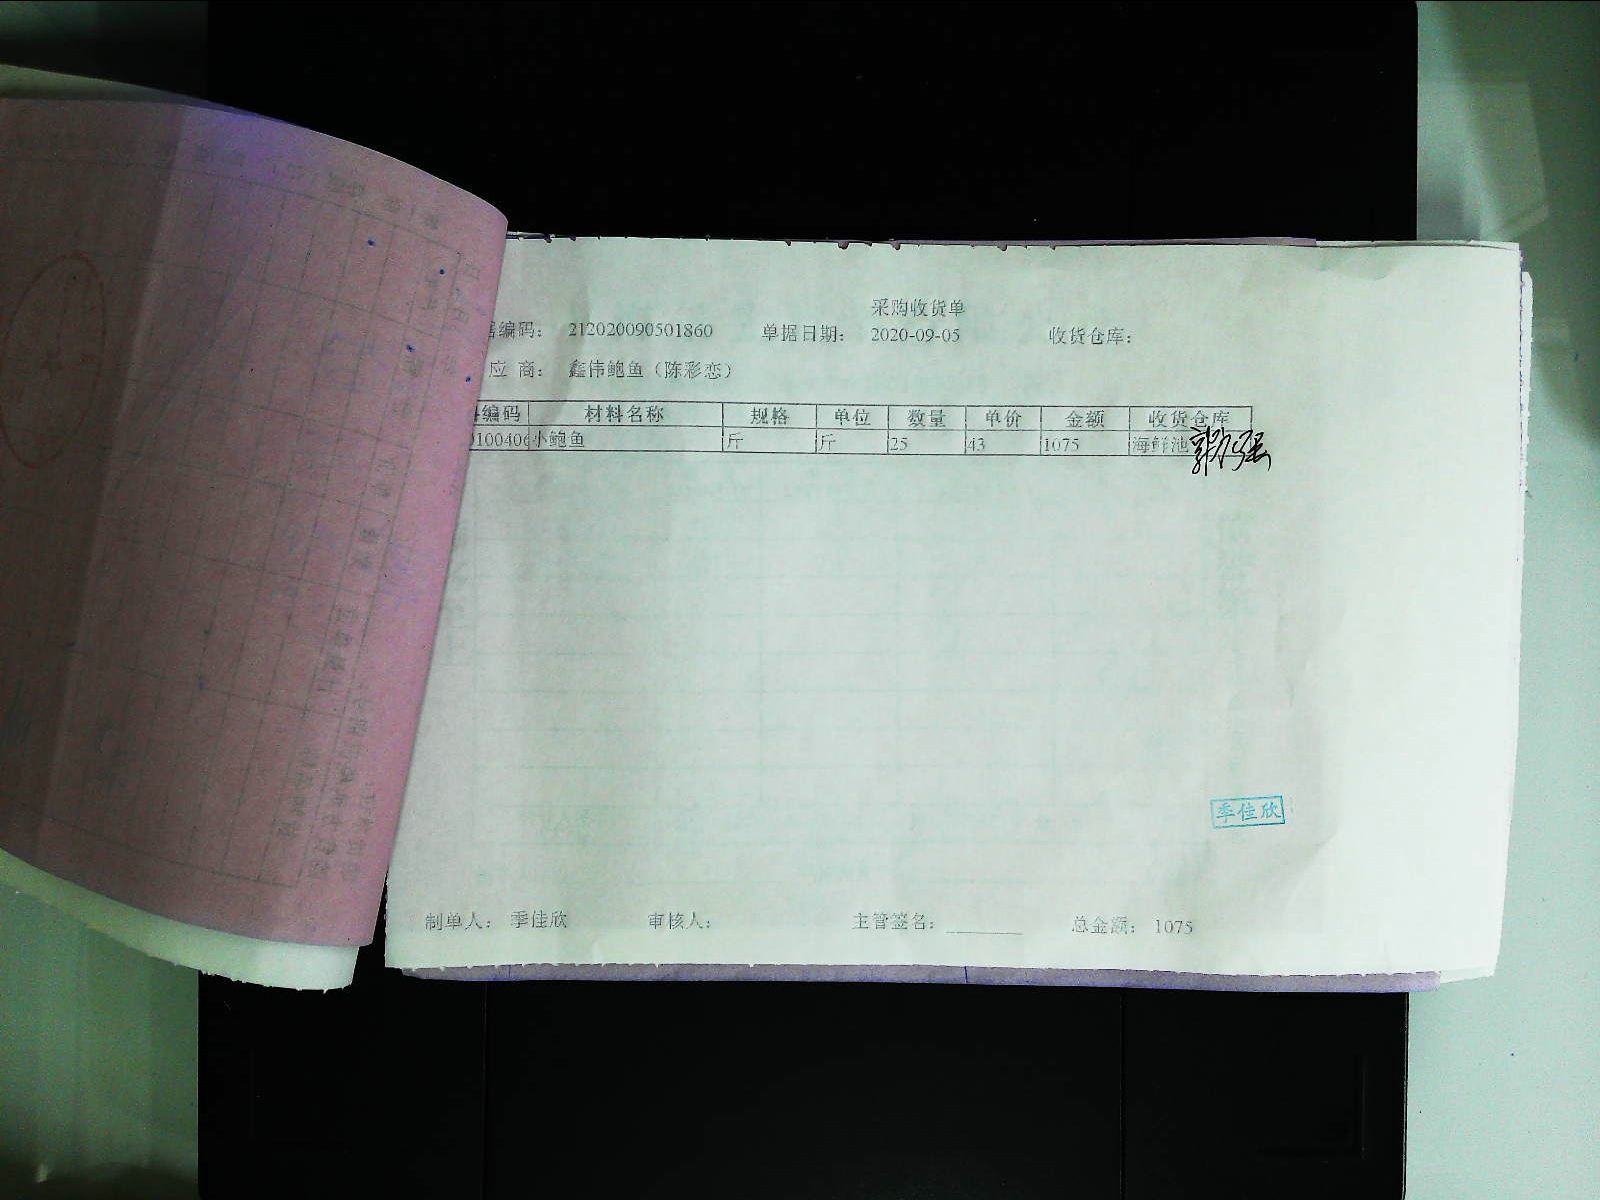 采购收货单
编码: 212020090501860 单据日期: 2020-09-05 收货仓库:
应 商: 鑫伟鲍鱼（陈彩恋）
编码 材料名称 规格 单位 数量 单价 金额 收货仓库
100406 小鲍鱼 斤 斤 25 43 1075 海鲜池
季佳欣
制单人: 季佳欣 审核人: 主管签名: 总金额: 1075